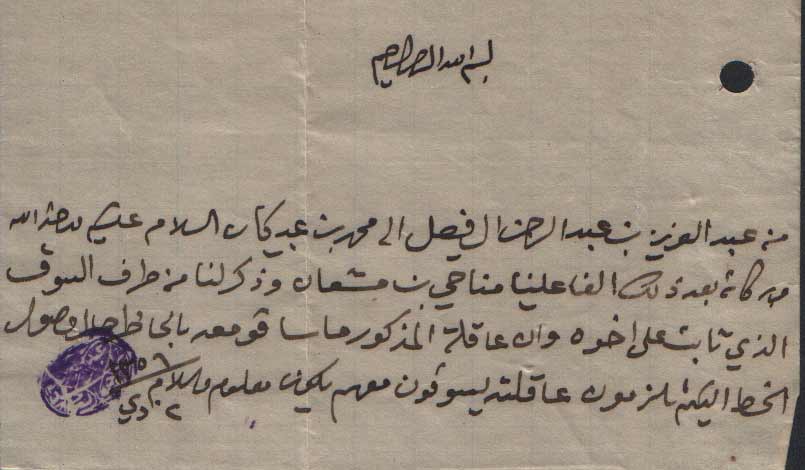 بسم الله الرحمن الرحيم
من عبد العزيز بن عبد الرحمن ال فيصل الى محمد بن عبيكان السلام عليكم ورحمة الله
وبركاته بعد ذلك الفا علينا مناحي بن مشعان وذكر لنا من طرف السوق
الذي ثابت على اخوه وان عاقلة المذكور ما ساقو معه حال وصول
الخط اليكم تلزمون عاقلته يسوقون معهم يكون معلوم والسلام